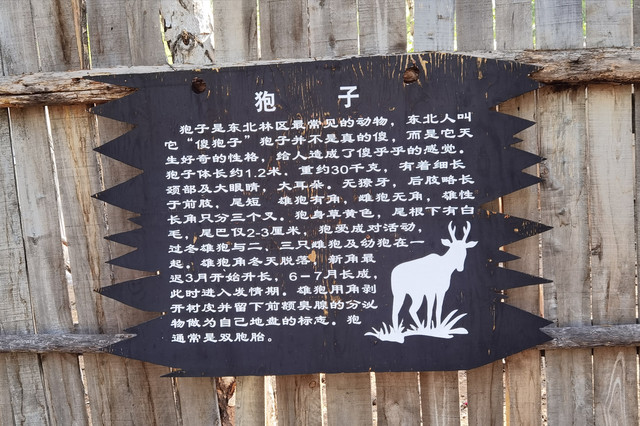 狍 子
狍子是东北林区最常见的动物，东北人叫
它“傻狍子”狍子并不是真的傻，而是它天
生好奇的性格，给人造成了傻乎乎的感觉。
狍子体长约1.2米，重约30千克，有着细长
颈部及大眼睛，大耳朵。无獠牙，后肢略长
于前肢，尾短，雄狍有角，雌狍无角，雄性
长角只分三个叉。狍身草黄色，尾根下有白
毛，尾巴仅2-3厘米，狍爱成对活动，
过冬雄狍与二，三只雌狍及幼狍在一
起，雄狍角冬天脱落，新角最
迟3月开始升长，6－7月长成，
此时进入发情期。雄狍用角剥
开树皮并留下前额臭腺的分泌
物做为自己地盘的标志。狍
通常是双胞胎。